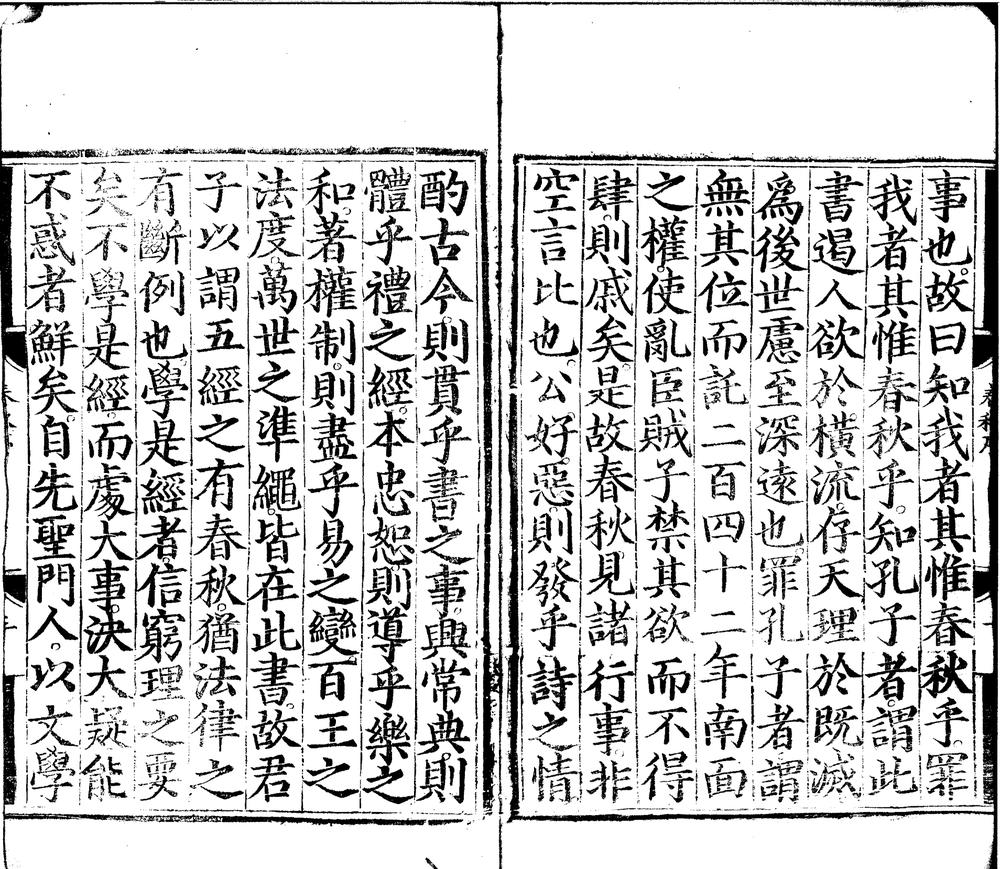 事也。故曰知我者其惟春秋乎。罪
我者其惟春秋乎。知孔子者。謂此
書遏人欲於橫流。存天理於既滅
爲後世慮至深遠也。罪孔子者謂
無其位而託二百四十二年南面
之權。使亂臣賊子禁其欲而不得
肆。則戚矣。是故春秋見諸行事。非
空言比也。公好惡。則發乎詩之情
酌古今。則貫乎書之事。興常典則
體乎禮之經。本忠恕則導乎樂之
和。著權制。則盡乎易之變。百王之
法度。萬世之準繩。皆在此書。故君
子以謂五經之有春秋。猶法律之
有斷例也。學是經者。信窮理之要
矣。不學是經。而處大事。決大疑能
不惑者鮮矣。自先聖門人。以文學